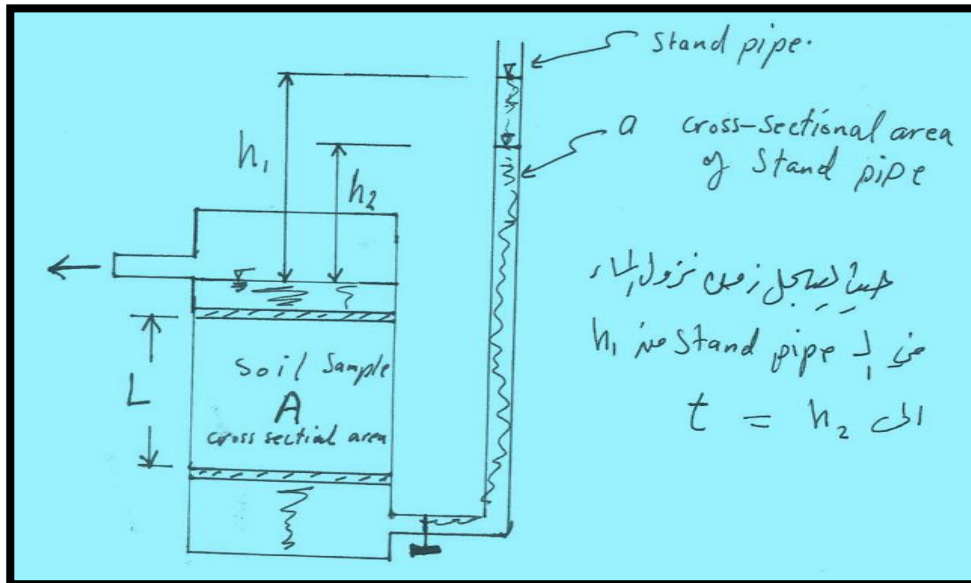 stand pipe.
a cross-sectional area
of Stand pipe
h₁
h₂
L
soil sample
A
cross sectial area
حيث يسجل زمن نزول الماء
في ال stand pipe من h₁
الى h₂ = t